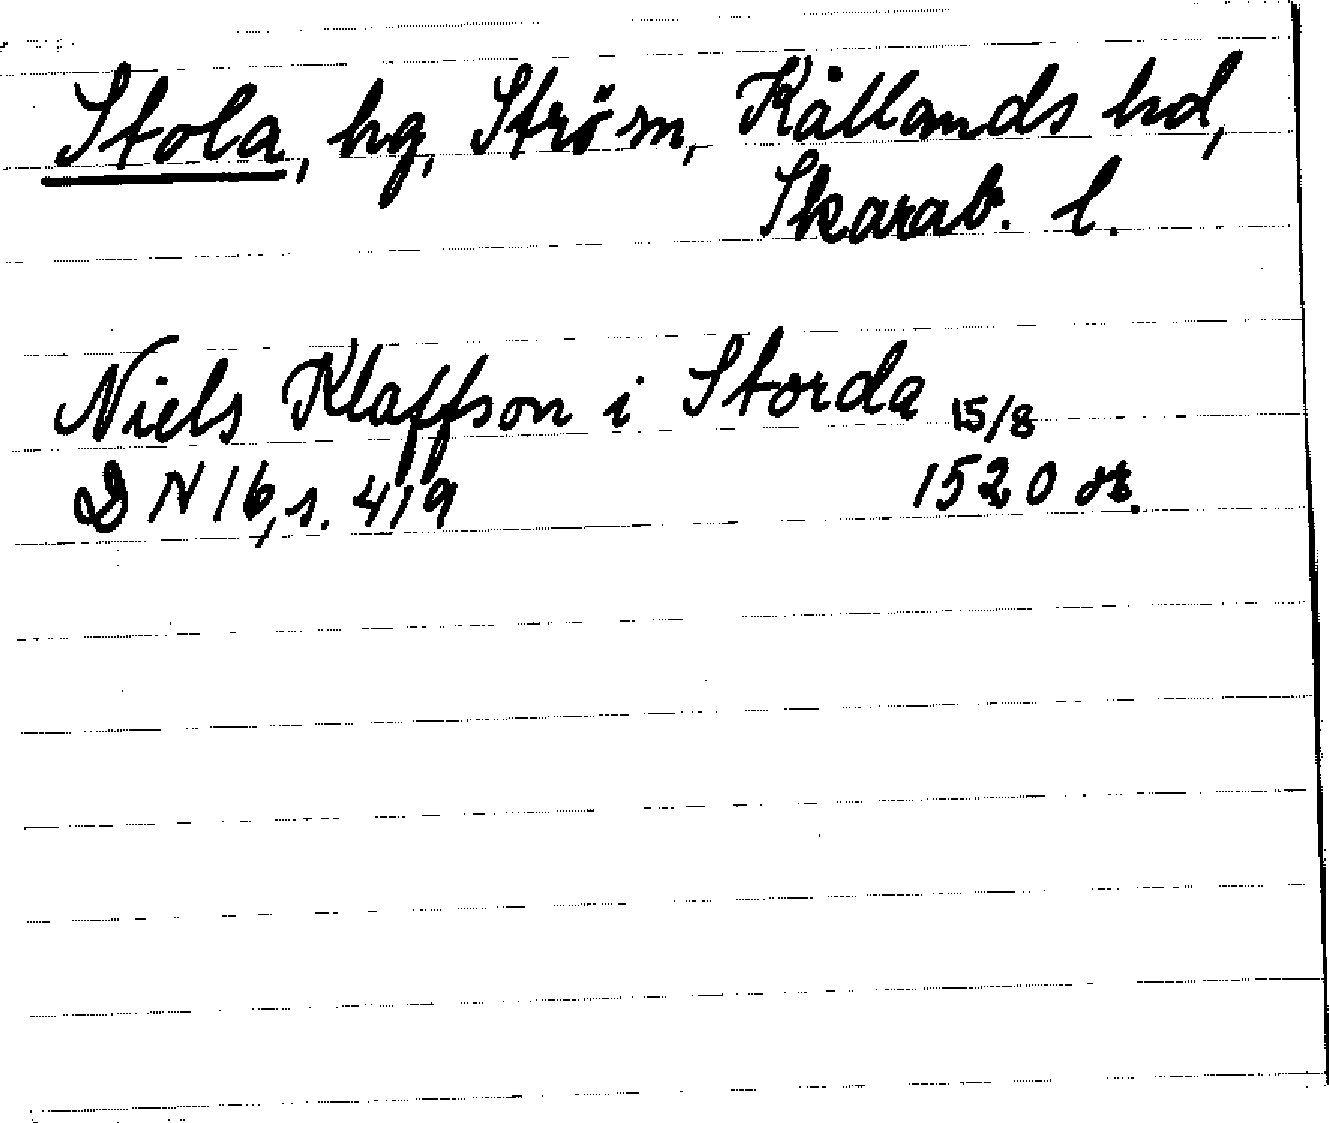 Stola, hg, Ström, Kållands hd,
Skarab. l.
Niels Klaffson i Storda 15/8
DN 16, s. 419 1520 or.